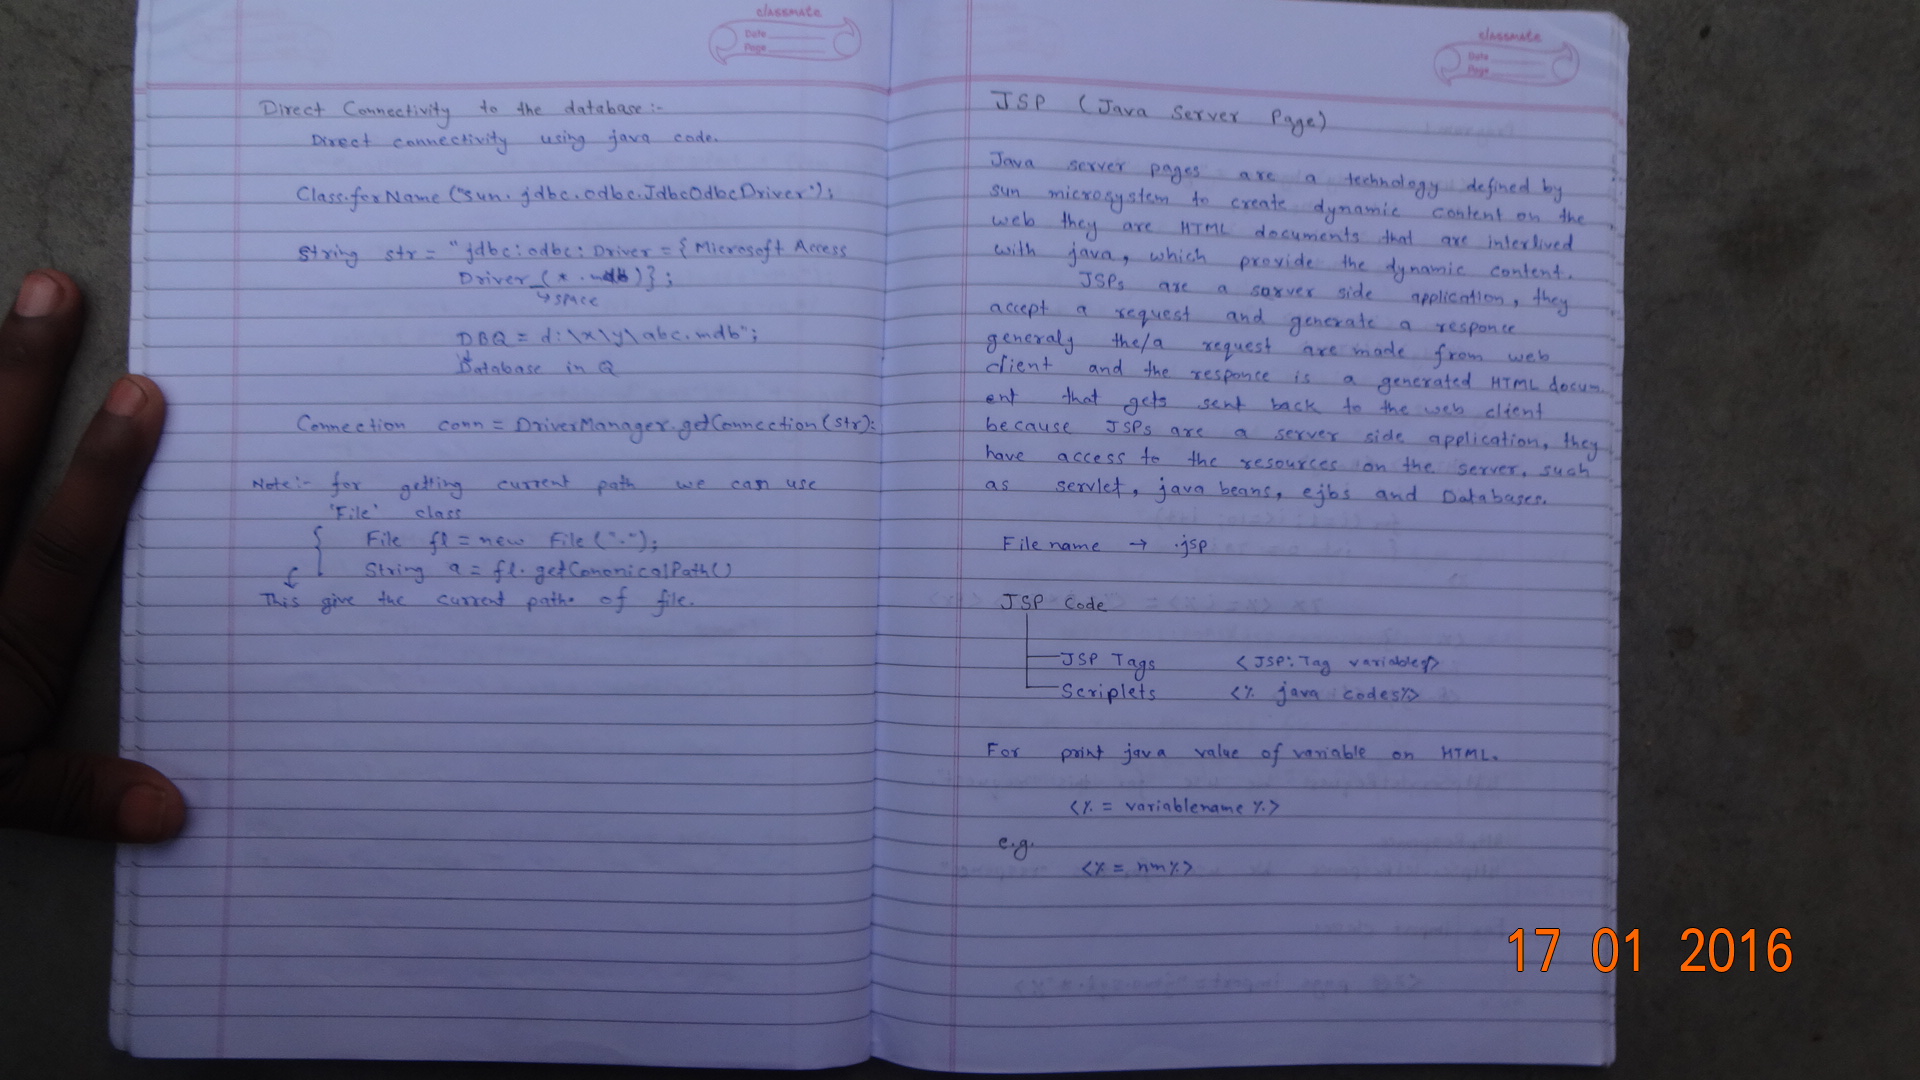 classmate
Date
Page
Direct Connectivity to the database:-
Direct connectivity using java code.
Class.forName ("sun.jdbc.odbc.JdbcOdbcDriver");
String str = "jdbc:odbc:Driver={Microsoft Access
Driver (*.mdb)};
↳space
DBQ = d:\x\y\abc.mdb";
Database in Q
Connection conn = DriverManager.getConnection(str);
Note:- for getting current path we can use
'File' class
File fl = new File (".");
String a = fl.getCononicalPath()
This give the current path. of file.
classmate
Date
Page
JSP (Java Server Page)
Java server pages are a technology defined by
sun microsystem to create dynamic content on the
web they are HTML documents that are interlived
with java, which provide the dynamic content.
JSPs are a sarver side application, they
accept a request and generate a responce
generaly the/a request are made from web
client and the responce is a generated HTML docum
ent that gets sent back to the web client
because JSPs are a server side application, they
have access to the resources on the server. such
as servlet, java beans, ejbs and Databases.
File name → .jsp
JSP Code
JSP Tags <JSP:Tag variable>
Scriplets <% java codes%>
For print java value of variable on HTML.
<% = variablename %>
e.g.
<% = nm%>
17 01 2016